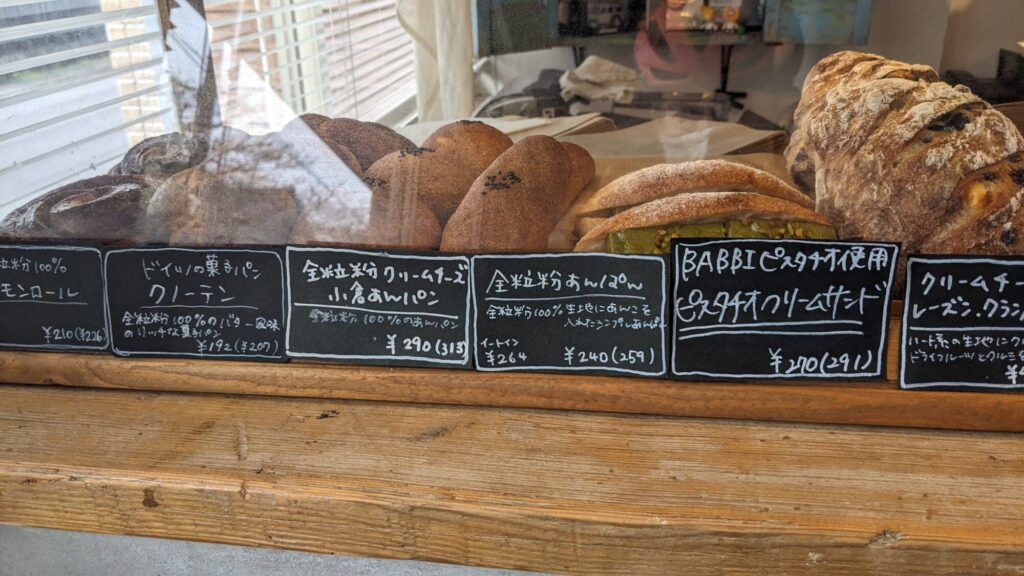 粒粉100%
モンロール
¥210(¥226)
ドイツの菓子パン
クノーテン
全粒粉100%のバター風味
のリッチな菓子パン
¥192(¥207)
全粒粉クリームチーズ
小倉あんパン
全粒粉100%のあんパン
¥290(313)
全粒粉あんぱん
全粒粉100%生地にあんこを
入れたシンプルあんぱん
イートイン
¥264
¥240(259)
BABBIピスタチオ使用
ピスタチオクリームサンド
¥270(291)
クリームチー
レーズン.クラン
ハード系の生地にクリ
ドライフルーツとクルミ